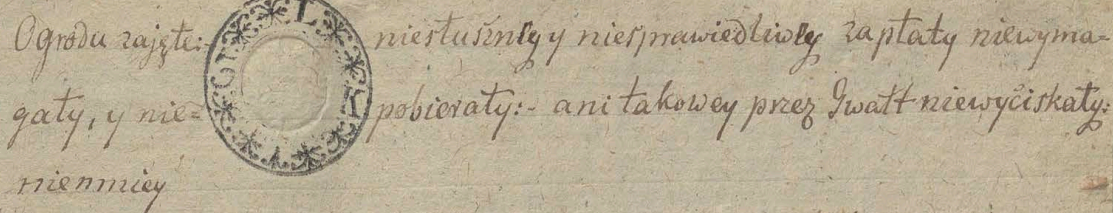 Ogrodu zajęte:- niesłuszney y niesprawiedliwey zapłaty niewyma-
gały, y nie= pobierały:- ani takowey przez Gwałt niewyciskały:
nienmiey